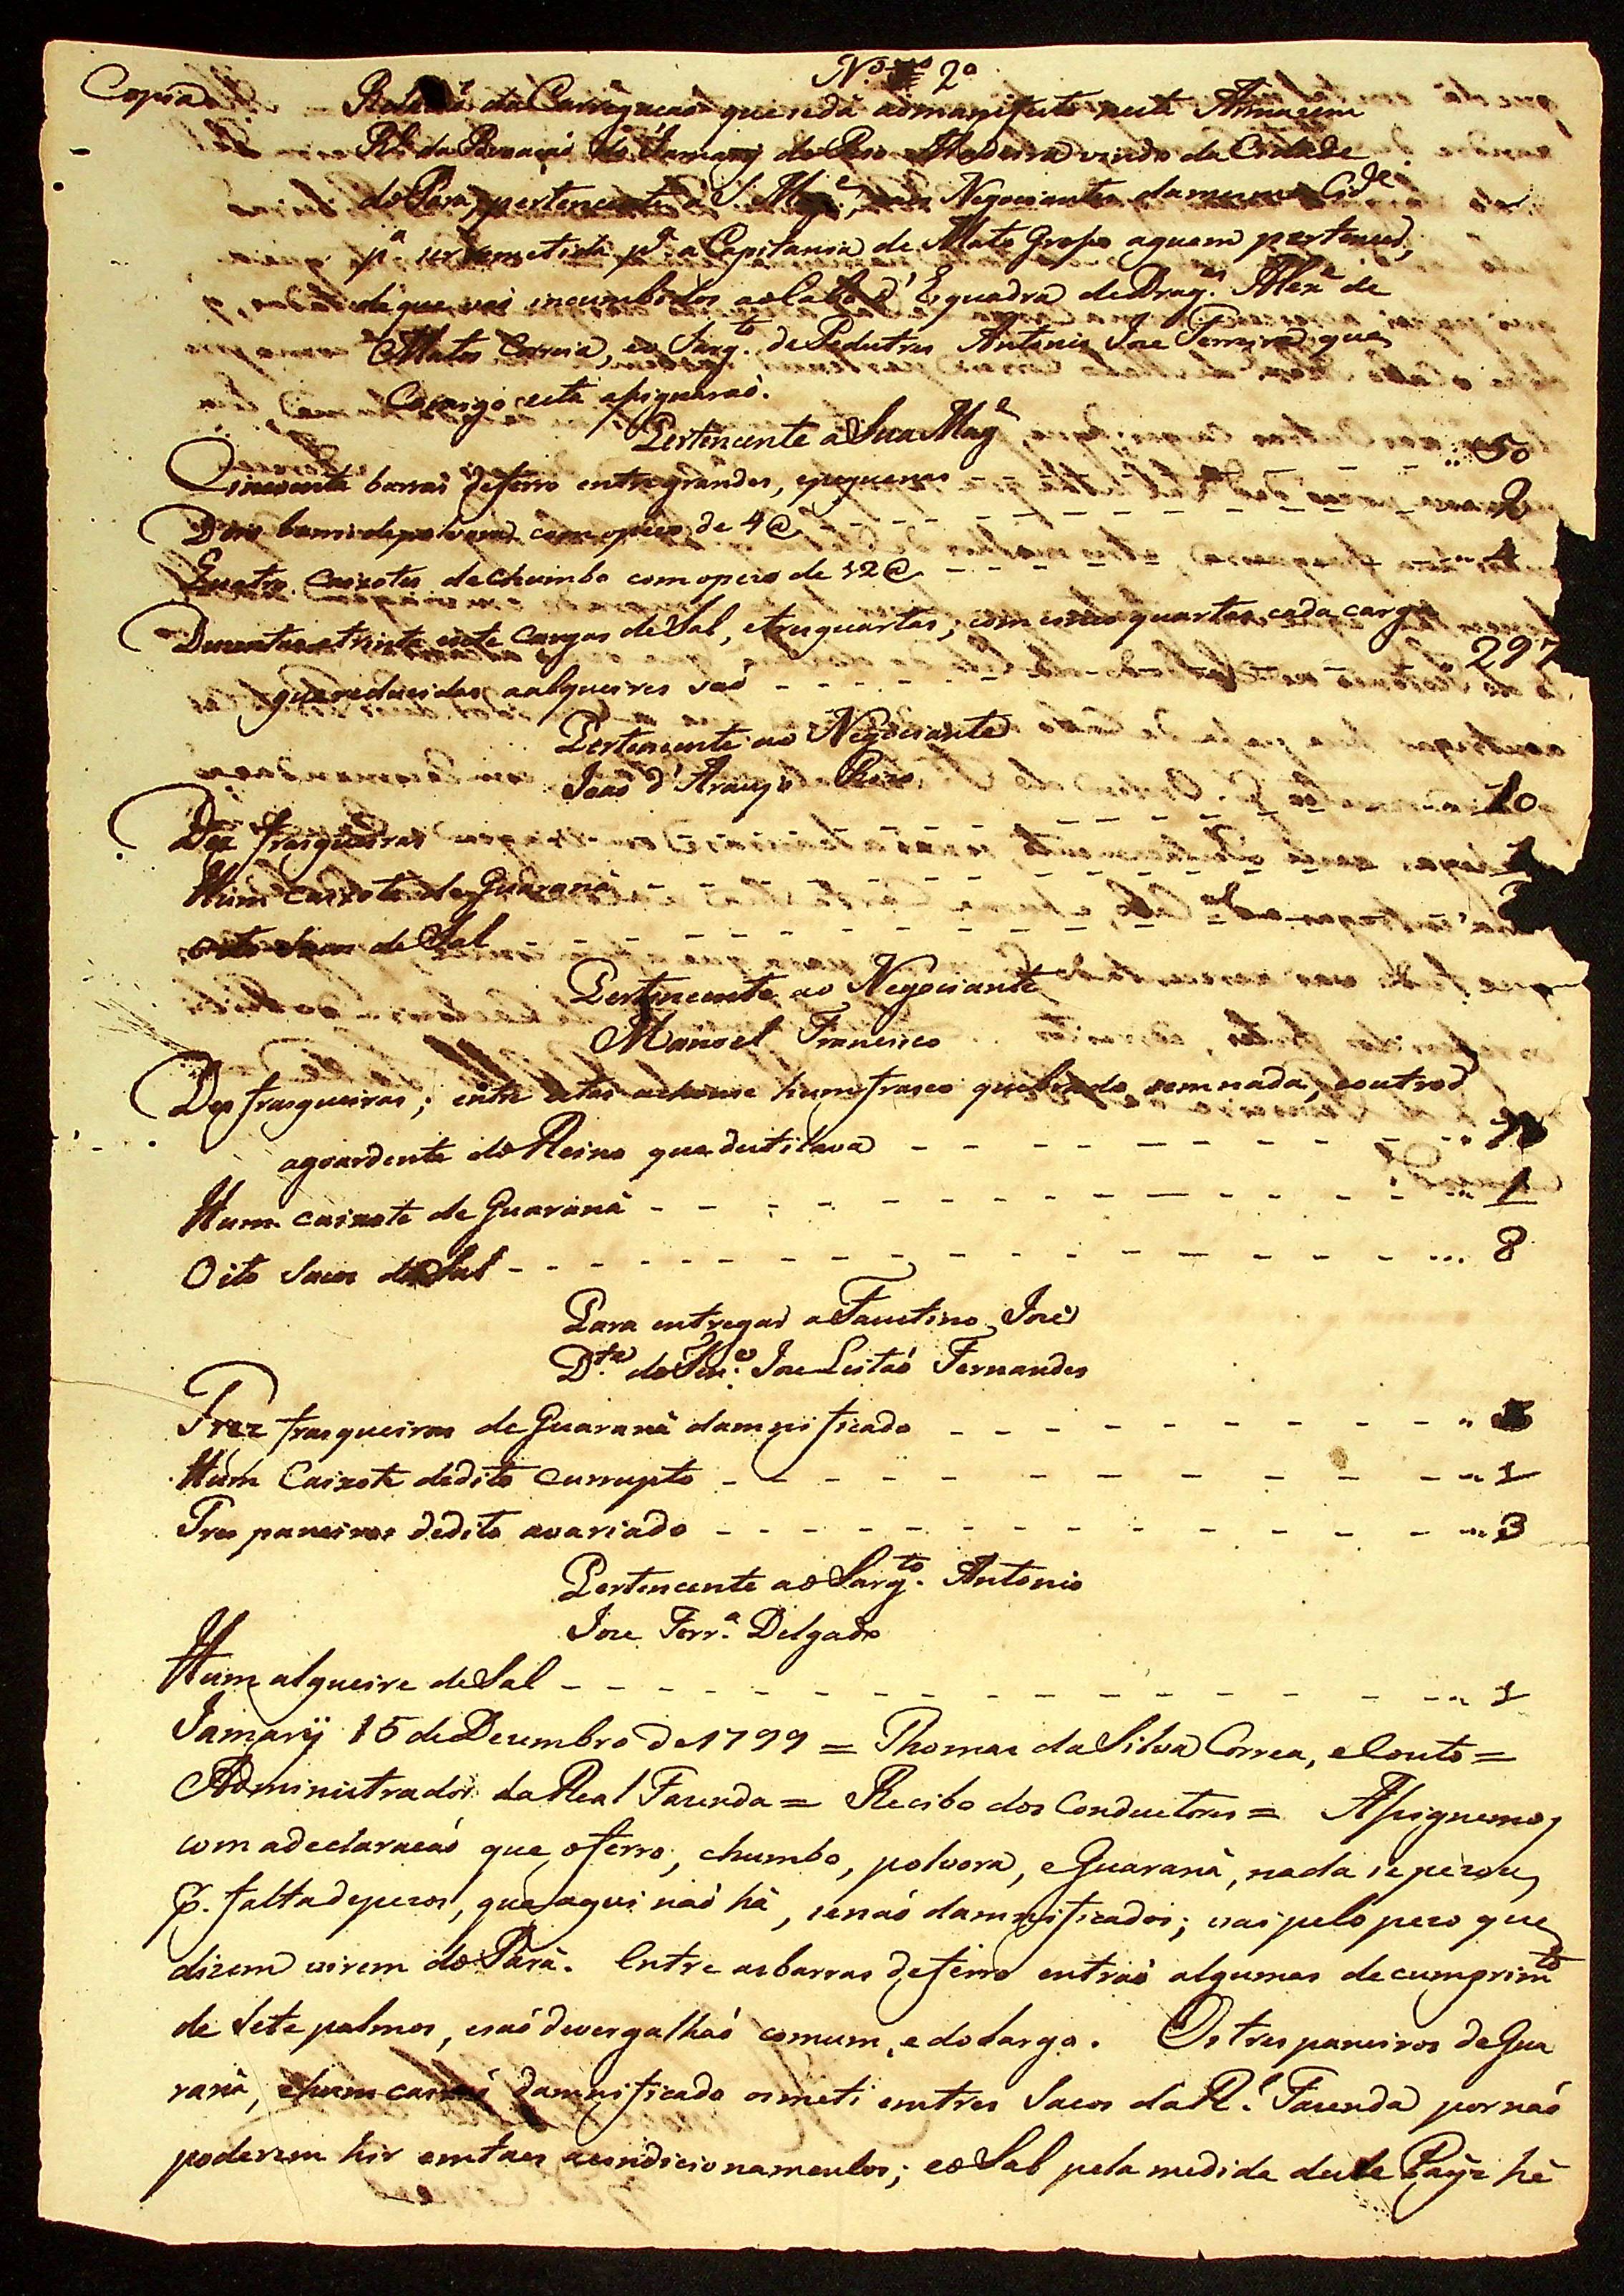 N.º 2º
Copia
Relação da Carregação que se dá ao manifesto neste Armazem
Rl. da Povoação do Jamary do Rio Madeira vindo da Cidade
do Pará, pertencente a S. Mag.e, e aos Negociantes da mesma Cid.e
p.a ser remetida p.a a Capitania de Mato Groço a quem pertence,
de que vaõ incumbidos ao Cabo d'Esquadra de Drag.es Alex.e de
Matos Correia, e o Sarg.to de Pedestres Antonio Joze Ferreira que
Comigo esta asignaraõ.
Pertencente a Sua Mag.e
Cincoenta barras de ferro entre grandes, e pequenas - - - 50
Dois barris de polvora com o pezo de 4@ - - - 2
Quatro Caixotes de chumbo com o pezo de 12@ - - - 4
Duzentas e trinta e sete Cargas de Sal, e tres quartas; com cinco quartas cada carga
que reduzidas a alqueires saõ - - - 297
Pertencente ao Negociante
Joaõ d'Araujo Rozo
Dez frasqueiras - - - 10
Hum caixote de Guaranâ - - - 1
oito sacos de Sal - - -
Pertencente ao Negociante
Manoel Francisco
Dez frasqueiras; entre estas achouse hum frasco quebrado sem nada, e outro d
agoardente do Reino que destilava - - - 10
Hum caixote de Guaranâ - - - 1
Oito Sacos de Sal - - - 8
Para entregar a Faustino Joze
D.ta do Ten.e Joze Leitaõ Fernandes
Trez frasqueiras de Guaranâ damnificado - - - 3
Hum Caixote de dito currupto - - - 1
Tres paneiros de dito avariado - - - 3
Pertencente ao Sarg.to Antonio
Joze Ferr.a Delgado
Hum alqueire de Sal - - - 1
Jamarÿ 15 de Dezembro de 1799 = Thomaz da Silva Correa, e Couto =
Administrador da Real Fazenda = Recibo dos Conductores = Asignemos
com a declaraçaõ que, o ferro, chumbo, polvora, e Guaranâ, nada se pezou
p. falta de pezos, que aqui naõ hâ, senaõ damnificados; vai pelo pezo que
dizem virem do Parâ. Entre as barras de ferro entraõ algumas de cumprim.to
de Sete palmos, e saõ de vergalhaõ comum, e do largo. Os tres paneiros de Gua
ranâ, e hum damnificado os meti em tres Sacos da Rl. Fazenda por naõ
poderem hir em taes acondicionamentos; e o Sal pela medida deste Paÿz hê